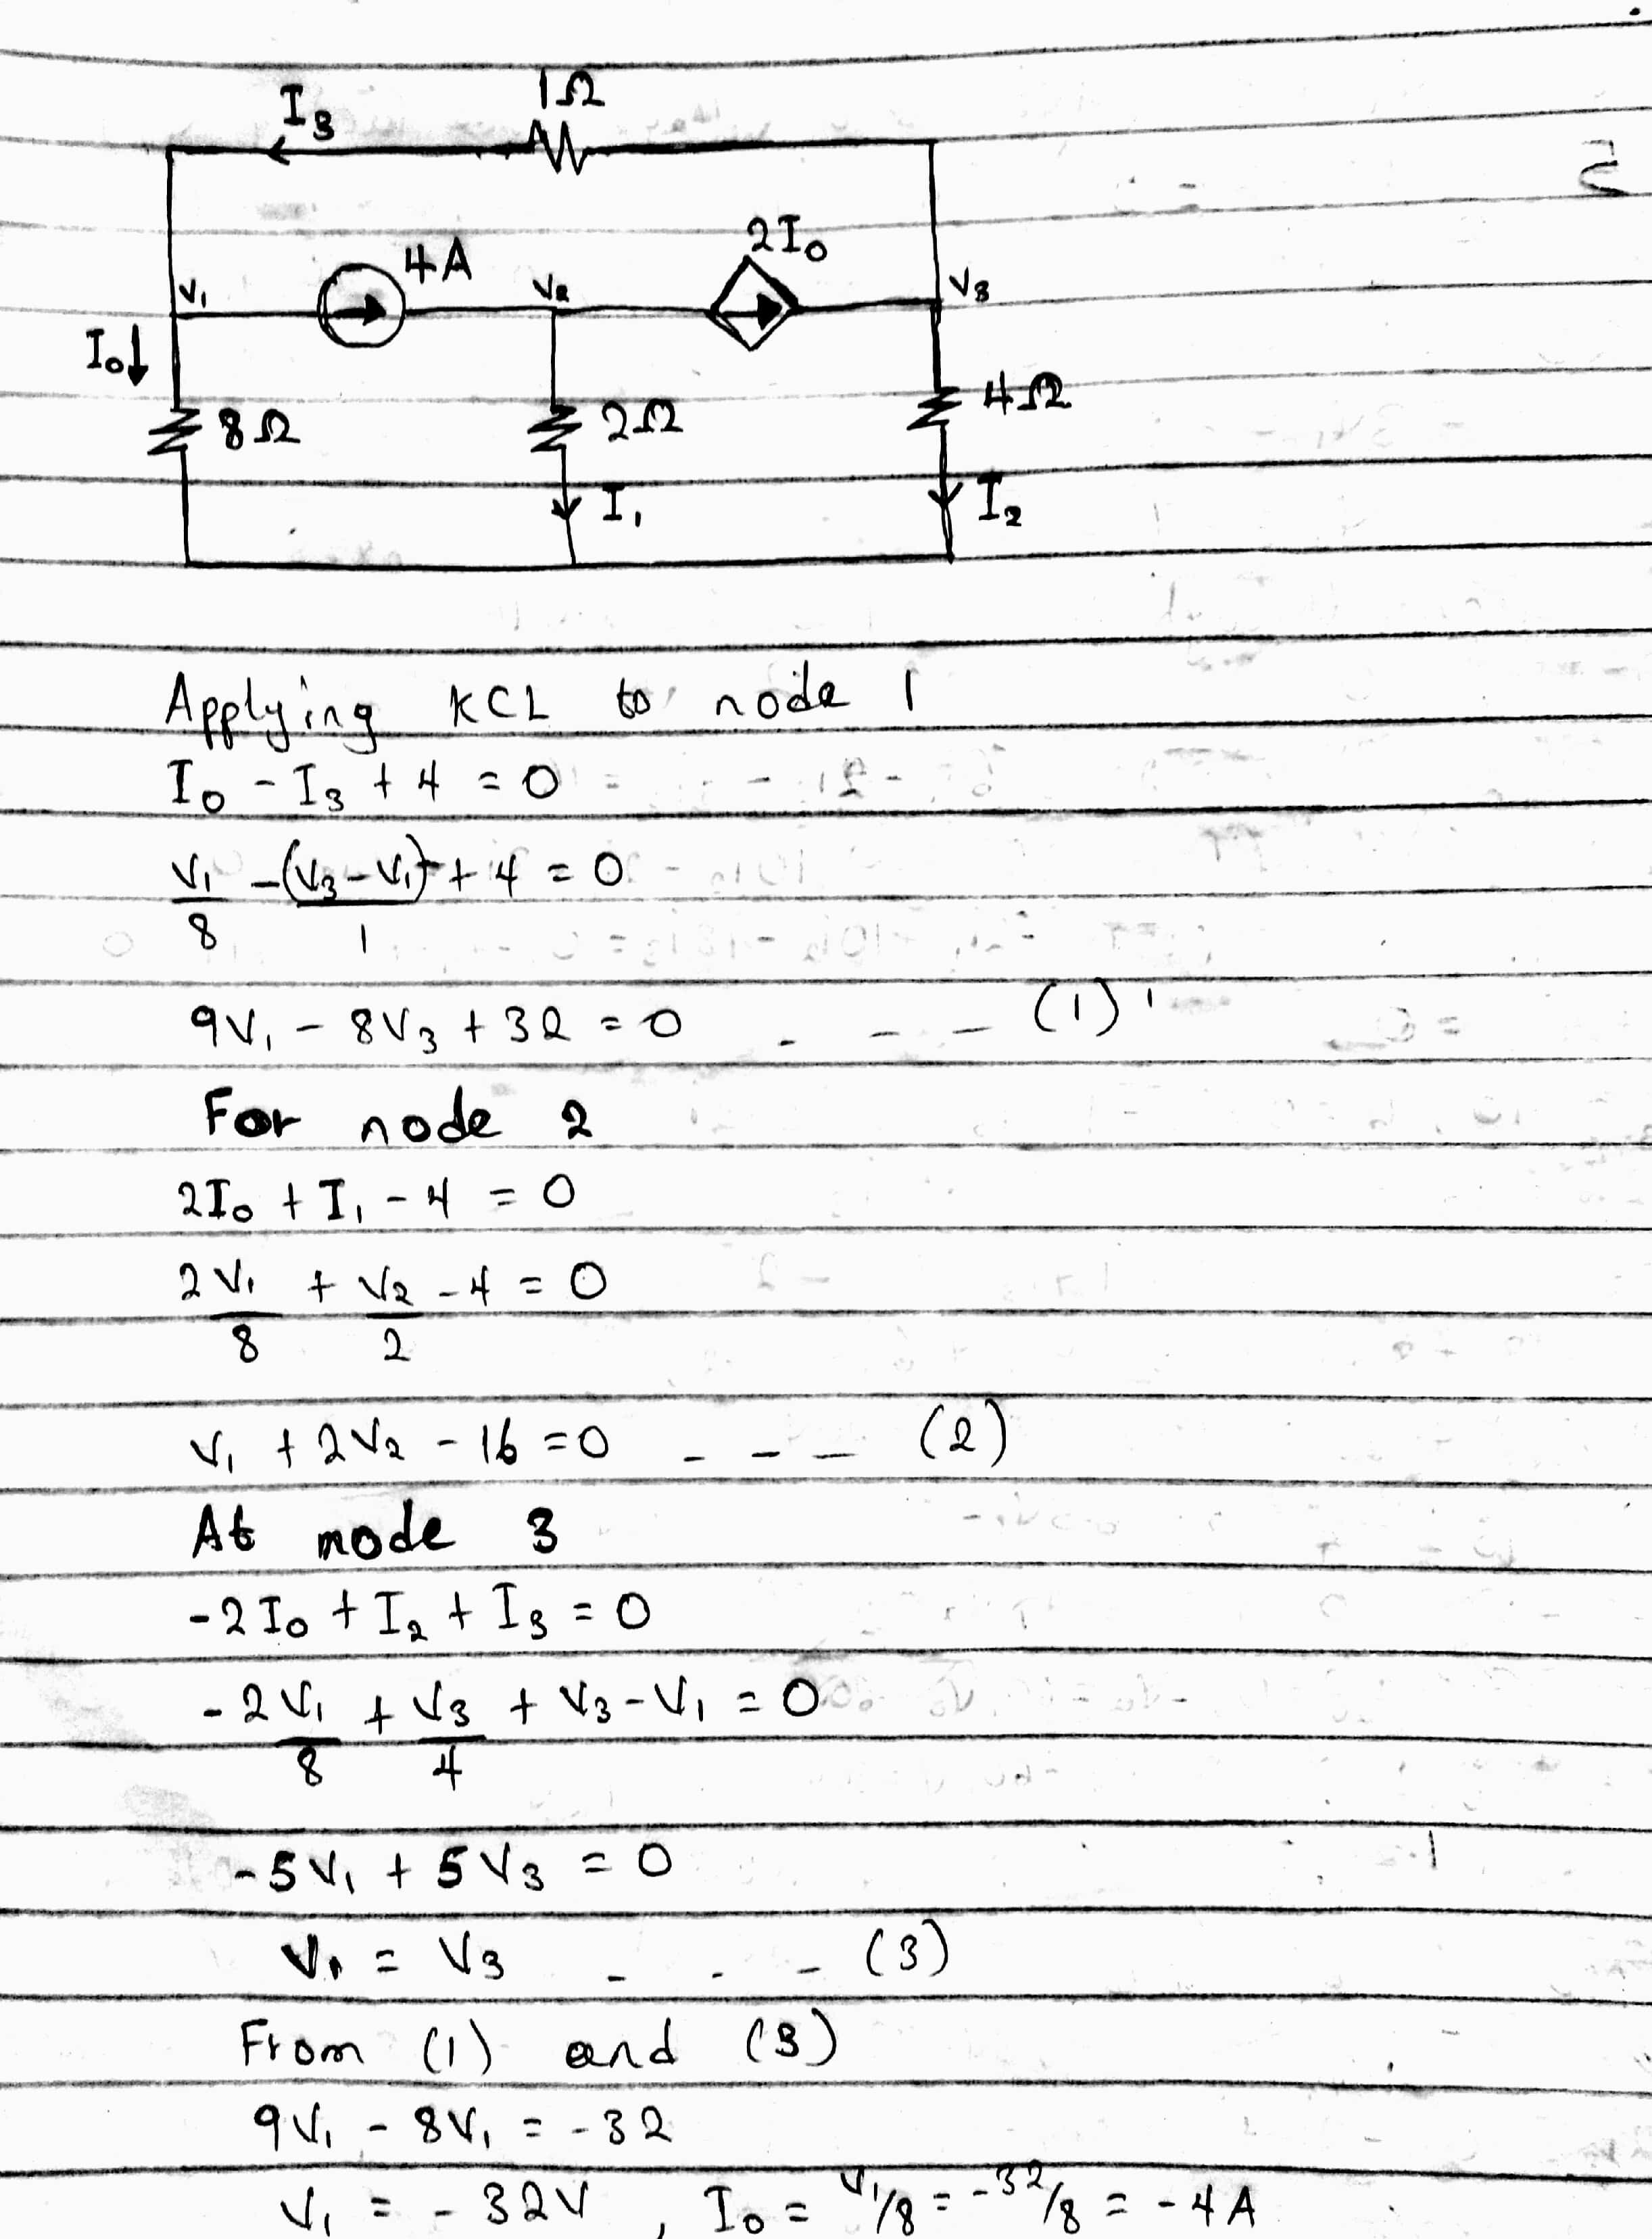 I₃
1Ω
4A
2I₀
V₁
V₂
V₃
I₀↓
8Ω
2Ω
4Ω
I₁
I₂
Applying KCL to node 1
I₀ - I₃ + 4 = 0
V₁/8 - (V₃-V₁)/1 + 4 = 0
9V₁ - 8V₃ + 32 = 0 - - - (1)
For node 2
2I₀ + I₁ - 4 = 0
2V₁/8 + V₂/2 - 4 = 0
V₁ + 2V₂ - 16 = 0 - - - (2)
At node 3
-2I₀ + I₂ + I₃ = 0
-2V₁/8 + V₃/4 + V₃ - V₁ = 0
-5V₁ + 5V₃ = 0
V₁ = V₃ - - - (3)
From (1) and (3)
9V₁ - 8V₁ = -32
V₁ = -32V , I₀ = V₁/8 = -32/8 = -4A